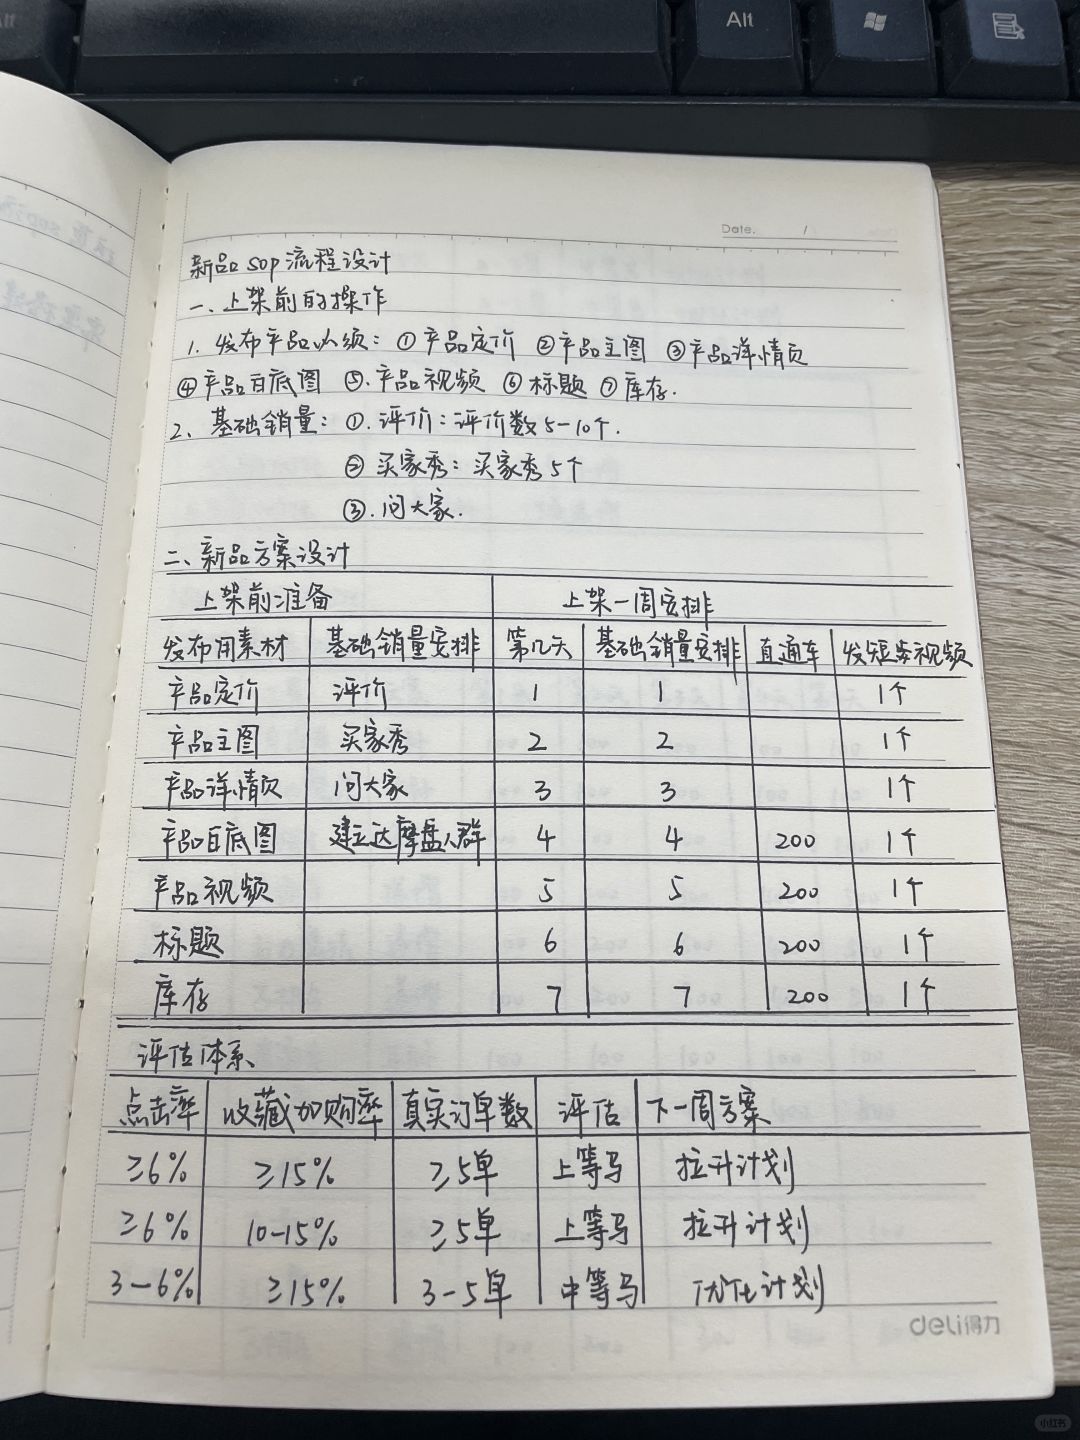 Alt
Alt
Date. /
新品sop流程设计
一、上架前的操作
1. 发布产品必须：①产品定价 ②产品主图 ③产品详情页
④产品白底图 ⑤.产品视频 ⑥标题 ⑦库存.
2、基础销量：①.评价：评价数5-10个.
② 买家秀：买家秀5个
③.问大家.
二、新品方案设计
上架前准备 上架一周安排
发布用素材 基础销量安排 第几天 基础销量安排 直通车 发短视频
产品定价 评价 1 1 1个
产品主图 买家秀 2 2 1个
产品详情页 问大家 3 3 1个
产品白底图 建立达摩盘人群 4 4 200 1个
产品视频 5 5 200 1个
标题 6 6 200 1个
库存 7 7 200 1个
评估体系
点击率 收藏加购率 真实订单数 评估 下一周方案
≥6% ≥15% ≥5单 上等马 拉升计划
≥6% 10-15% ≥5单 上等马 拉升计划
3-6% ≥15% 3-5单 中等马 优化计划
deli得力
小红书